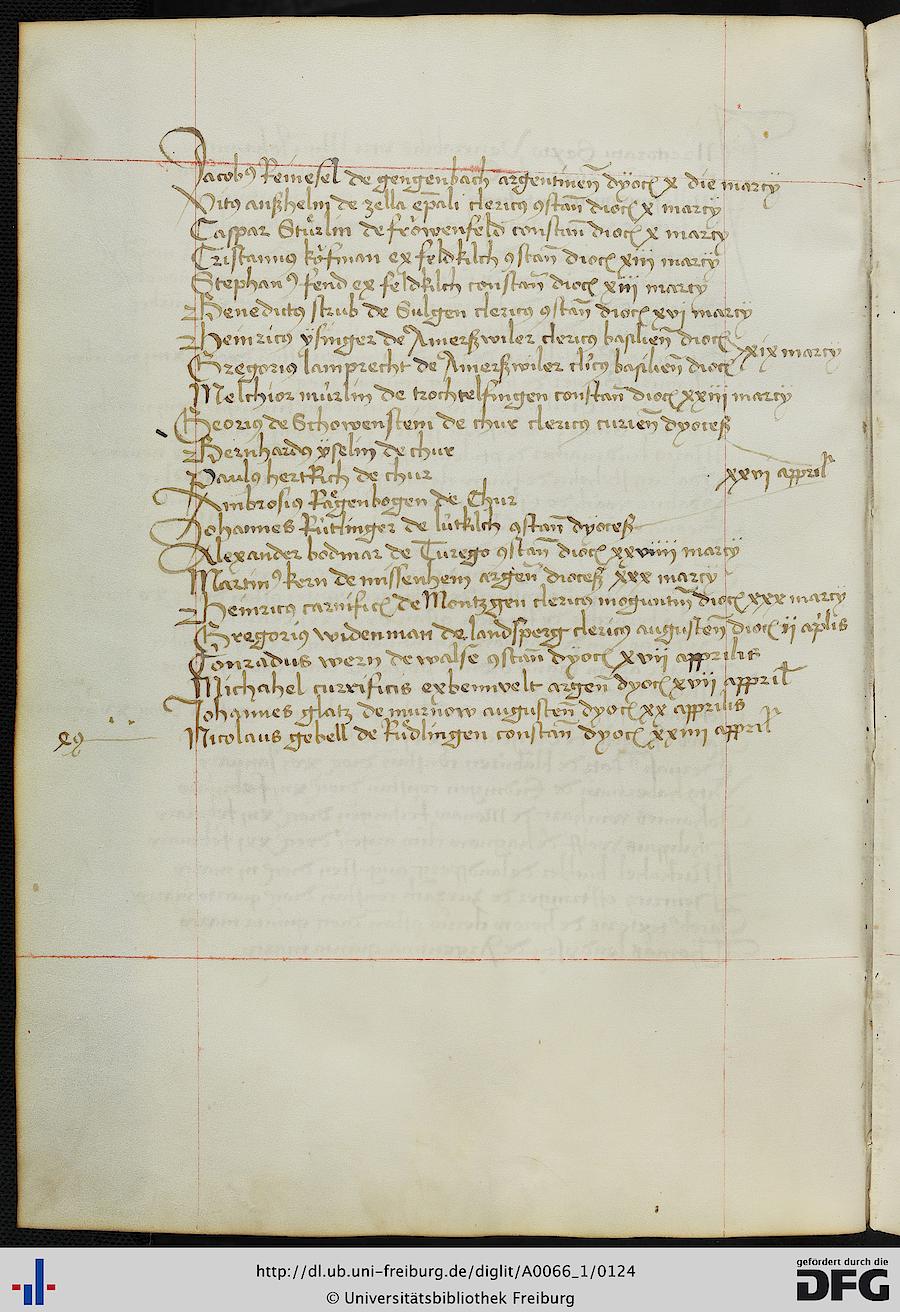 Jacobꝰ Reinesel de gengenbach argentinen̄ dyoc̄ x die marcÿ
Vitꝰ anßhelm de zella ep̄ali clericꝰ ꝯstan̄ dioc̄ x marcÿ
Caspar Stúrlin de frowenfeld constan̄ dioc̄ x marcÿ
Cristannus kofman ex feldkilch ꝯstan̄ dioc̄ xiii marcÿ
Stephanꝰ fend ex feldkilch constan̄ dioc̄ xiii marcÿ
Benedictꝰ strub de Sulgen clericꝰ ꝯstan̄ dioc̄ xvi marcÿ
Heinricus ÿsinger de Amerßwiler clericꝰ basilien̄ dioc̄
xix marcÿ
Gregorius lamprecht de Amerßwiler cl̄icꝰ basilien̄ dioc̄
Melchior múrlin de trochtelfingen constan̄ dioc̄ xxiii marcÿ
Georius de Schowenstein de chur clericꝰ curien̄ dyoceß
Bernhardꝰ ÿselin de chur
Paulꝰ hertRich de chur
xxvi apprił
Ambrosius Rägenbogen de Chur
Johannes Rútlinger de lútkilch ꝯstan̄ dyoceß
Alexander bodmar de Turego ꝯstan̄ dioc̄ xxviiii marcÿ
Martinꝰ kern de missenhein argen̄ dioceß xxx marcÿ
Heinricꝰ carnific̄ de Montzgen clericus moguntin̄ dioc̄ xxx marcÿ
Gregorius widenman de landsperg clericꝰ augusten̄ dioc̄ ii ap̄lis
Cönradus wern de walse ꝯstan̄ dyoc̄ xvii apprilis
Michahel currificis ex bennvelt argen̄ dyoc̄ xvii apprił
Johannes glatz de murnow augusten̄ dyoc̄ xx apprilis
Nicolaus gebell de Rúdlingen constan̄ dyoc̄ xxiiii apprił
http://dl.ub.uni-freiburg.de/diglit/A0066_1/0124
© Universitätsbibliothek Freiburg
gefördert durch die
DFG